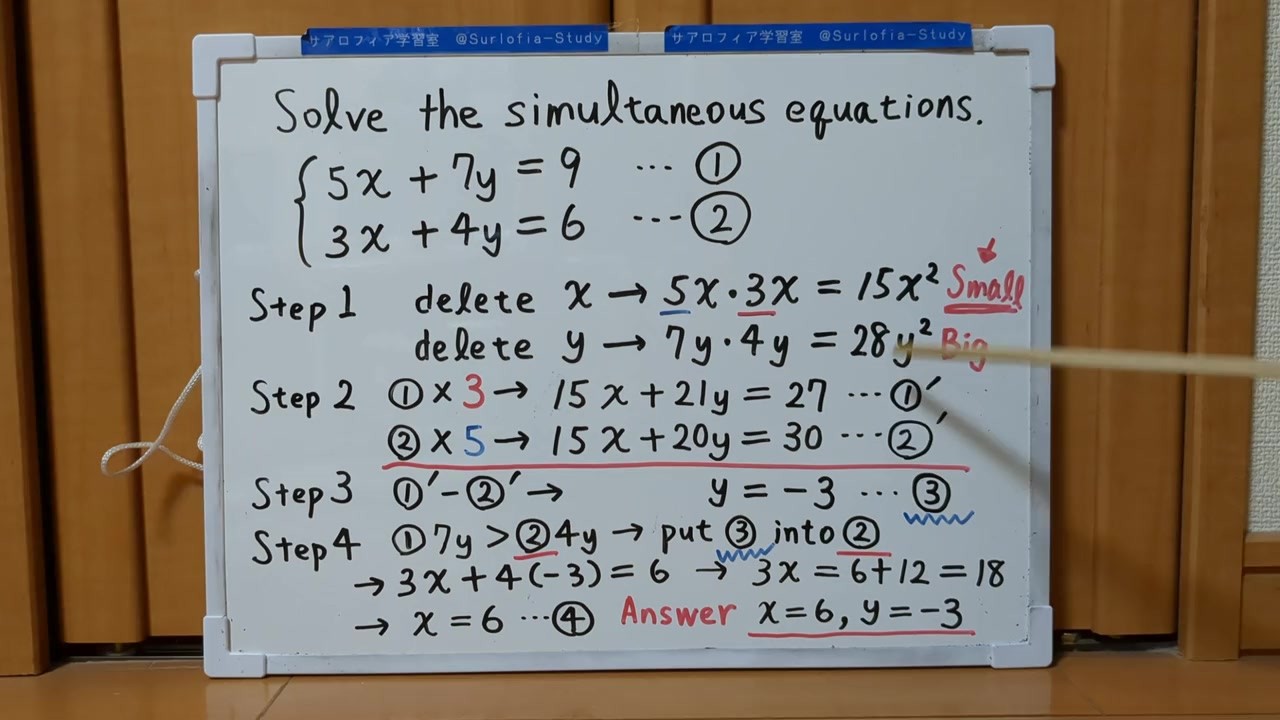 サアロフィア学習室 @Surlofia-Study
サアロフィア学習室 @Surlofia-Study
Solve the simultaneous equations.
5x + 7y = 9 ... ①
3x + 4y = 6 ... ②
Step 1 delete x → 5x・3x = 15x² Small
delete y → 7y・4y = 28y² Big
Step 2 ① × 3 → 15x + 21y = 27 ... ①′
② × 5 → 15x + 20y = 30 ... ②′
Step 3 ①′ - ②′ → y = -3 ... ③
Step 4 ① 7y > ② 4y → put ③ into ②
→ 3x + 4(-3) = 6 → 3x = 6+12 = 18
→ x = 6 ... ④ Answer x=6, y=-3